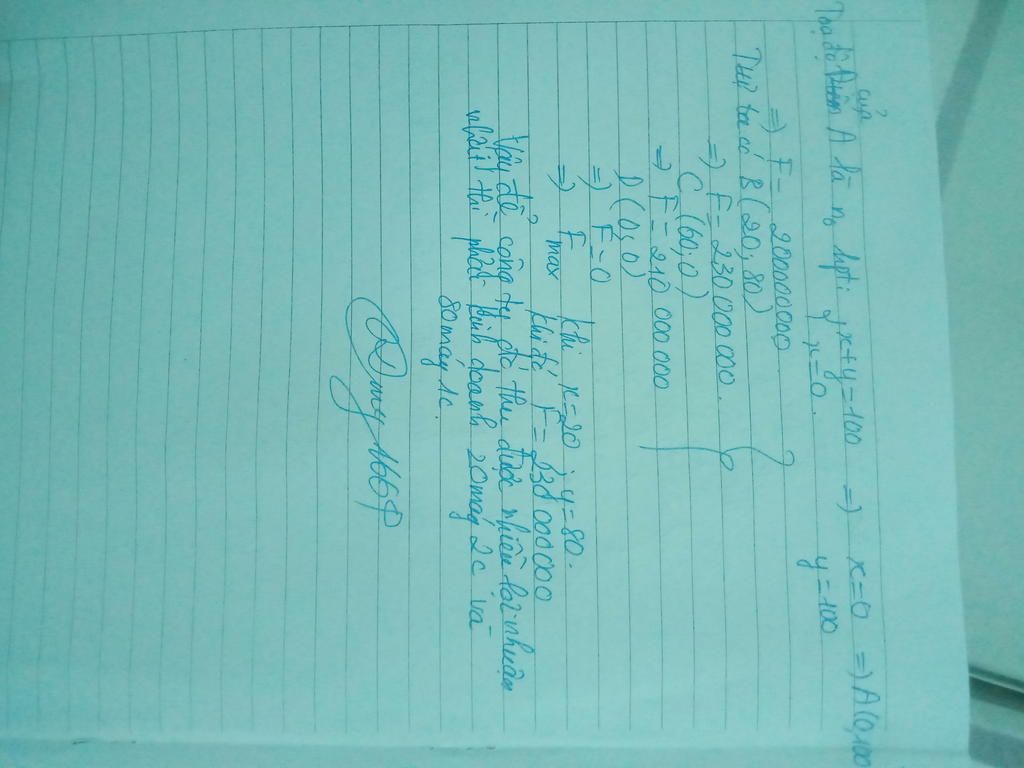 Toạ độ của điểm A là no hpt: { x+y=100 => x=0 => A(0,100
x=0. y=100
=> F = 200000000
Tương tự ta có B(20;80)
=> F = 230 000 000.
C(60;0)
=> F = 210 000 000
D(0;0)
=> F=0
=> Fmax khi x=20; y=80.
khi đó F = 230 000 000
Vậy để công ty đó thu được nhiều lợi nhuận
nhất thì phải kinh doanh 20 máy 2c và
80 máy 1c.